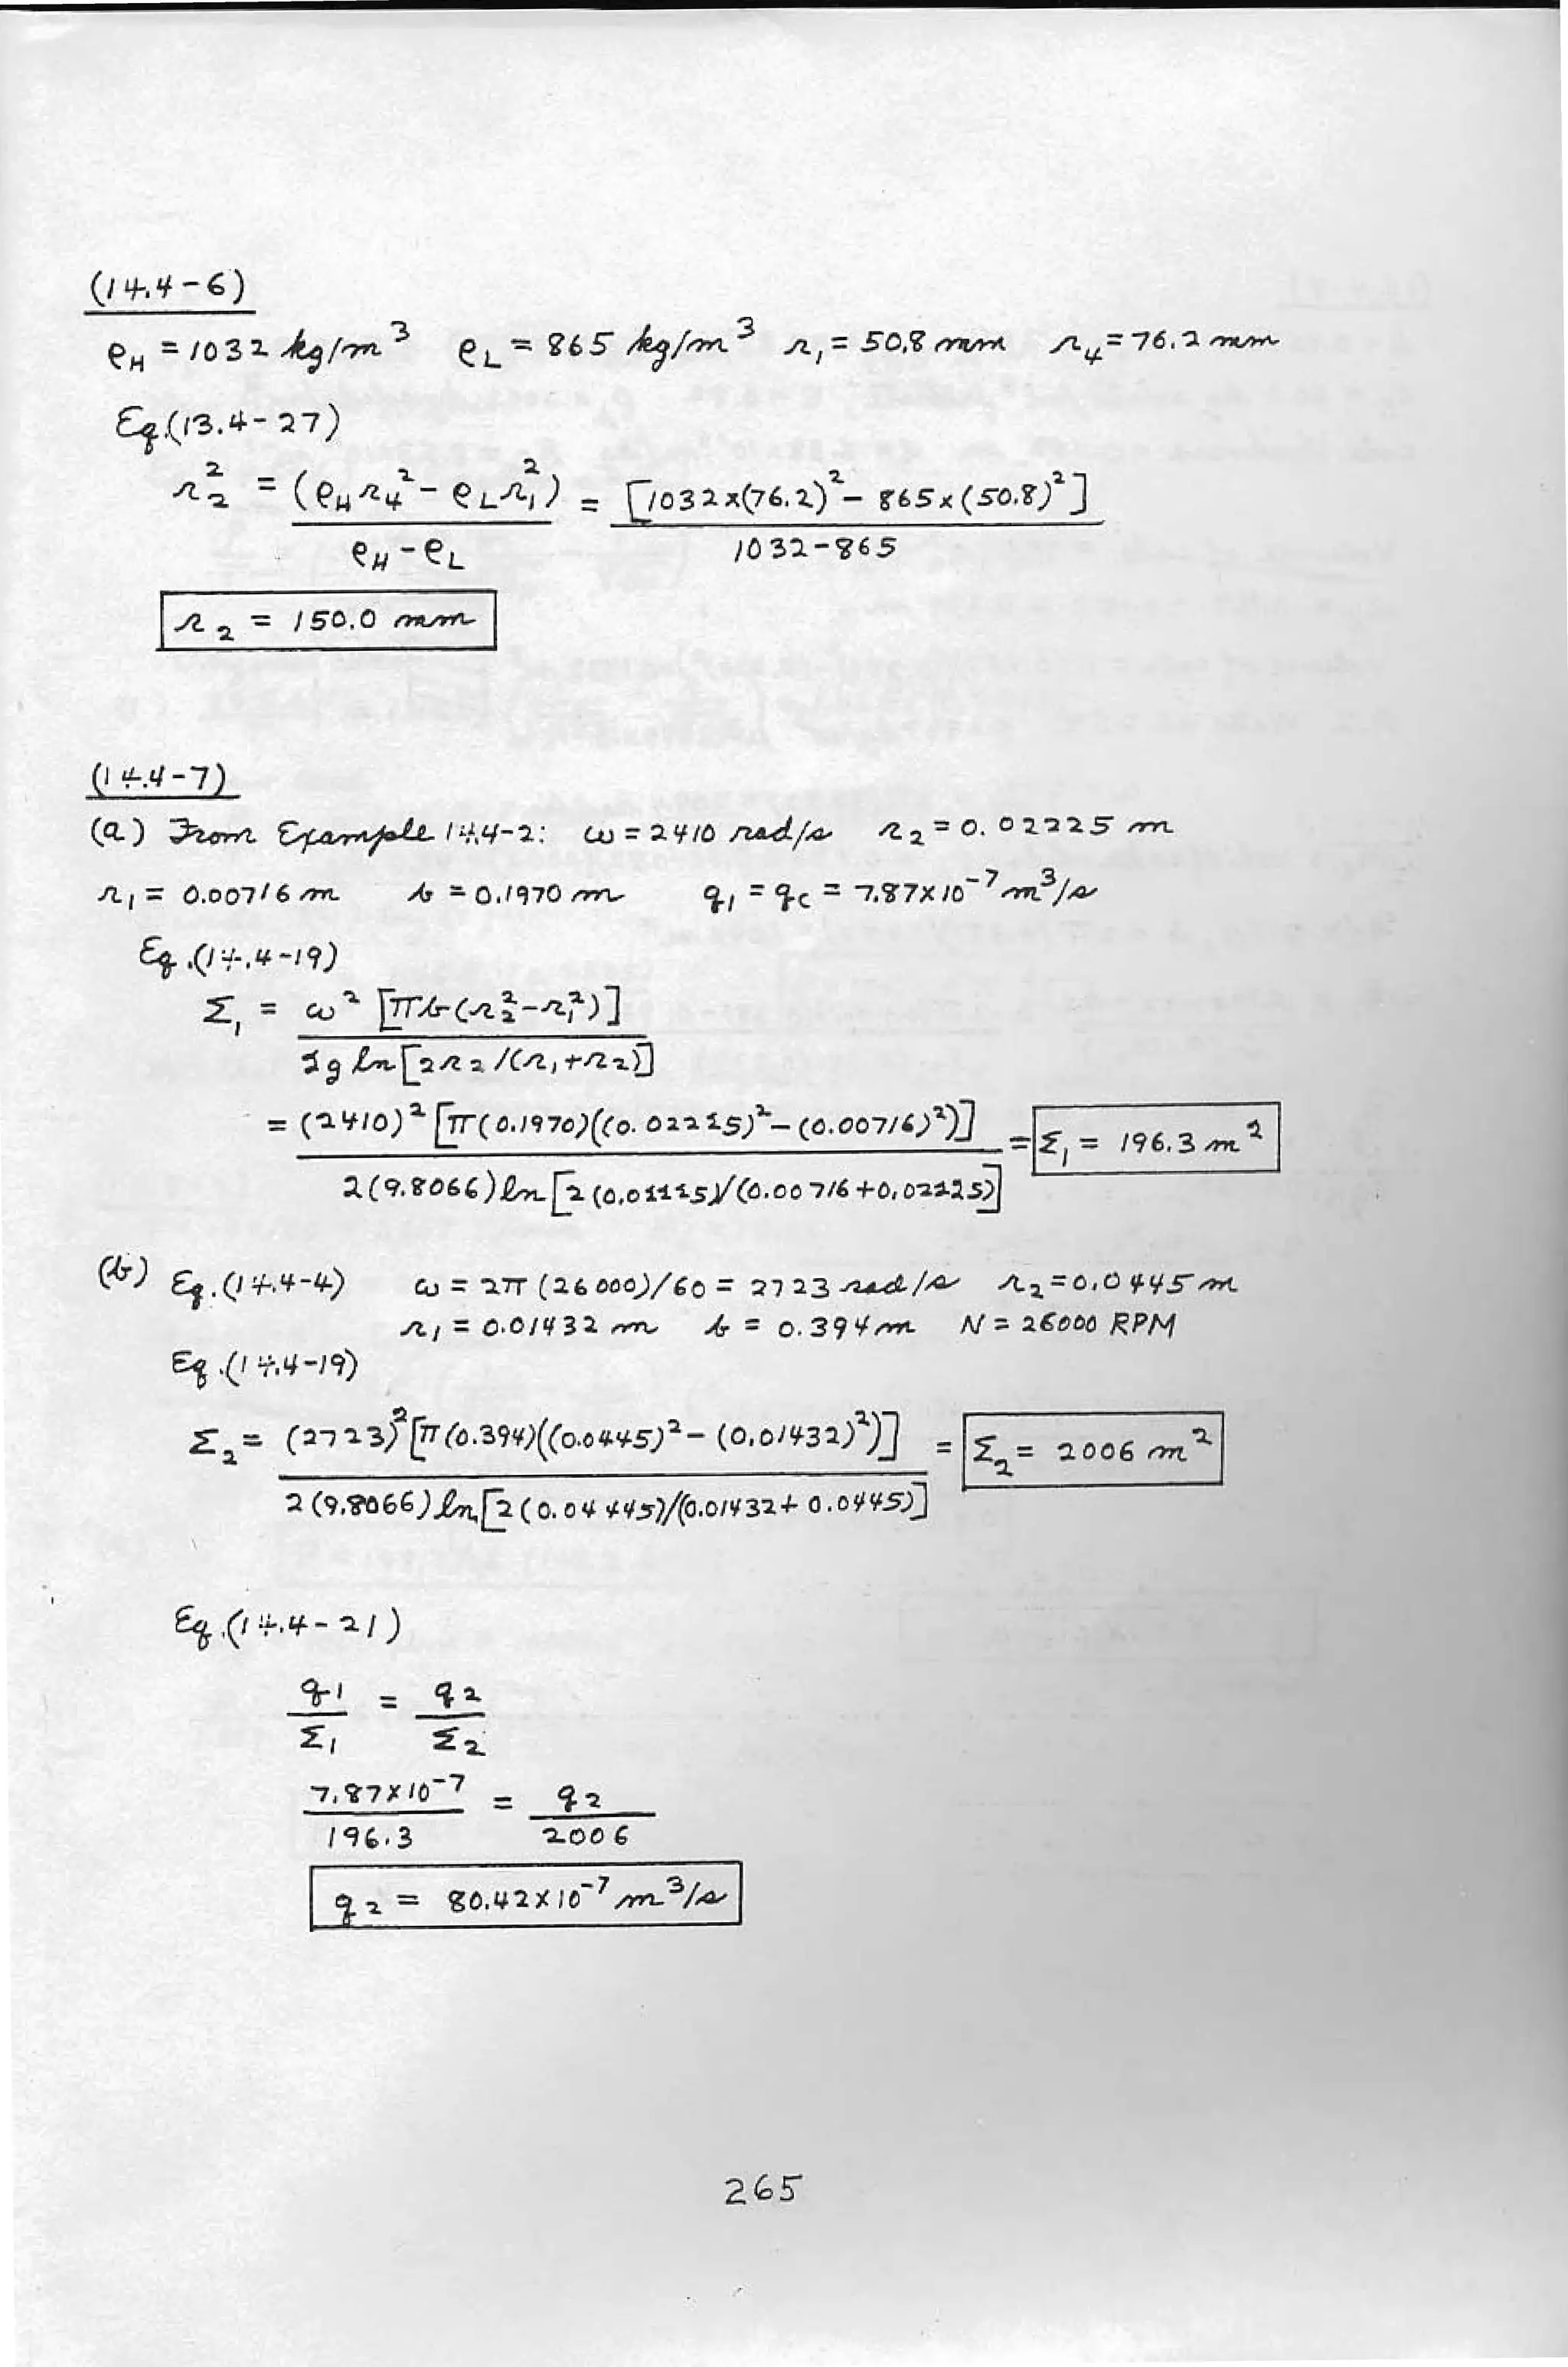 (14.4-6)
ρH = 1032 kg/m³ ρL = 865 kg/m³ r₁ = 50.8 mm r₄ = 76.2 mm
Eq.(13.4-27)
r₂² = (ρH r₄² - ρL r₁²) / (ρH - ρL) = [1032×(76.2)² - 865×(50.8)²] / (1032-865)
r₂ = 150.0 mm
(14.4-7)
(a) From Example 14.4-2: ω = 2410 rad/s r₂ = 0.02225 m
r₁ = 0.00716 m b = 0.1970 m q₁ = qc = 7.87×10⁻⁷ m³/s
Eq.(14.4-19)
Σ₁ = ω² [πb(r₂²-r₁²)] / 2g ln[2r₂/(r₁+r₂)]
= (2410)² [π(0.1970)((0.02225)² - (0.00716)²)] / 2(9.8066) ln[2(0.02225)/(0.00716+0.02225)] = Σ₁ = 196.3 m²
(b) Eq.(14.4-4) ω = 2π (26000)/60 = 2723 rad/s r₂ = 0.0445 m
r₁ = 0.01432 m b = 0.394 m N = 26000 RPM
Eq.(14.4-19)
Σ₂ = (2723)² [π(0.394)((0.0445)² - (0.01432)²)] / 2(9.8066) ln[2(0.04445)/(0.01432+0.0445)] = Σ₂ = 2006 m²
Eq.(14.4-21)
q₁/Σ₁ = q₂/Σ₂
7.87×10⁻⁷/196.3 = q₂/2006
q₂ = 80.42×10⁻⁷ m³/s
265